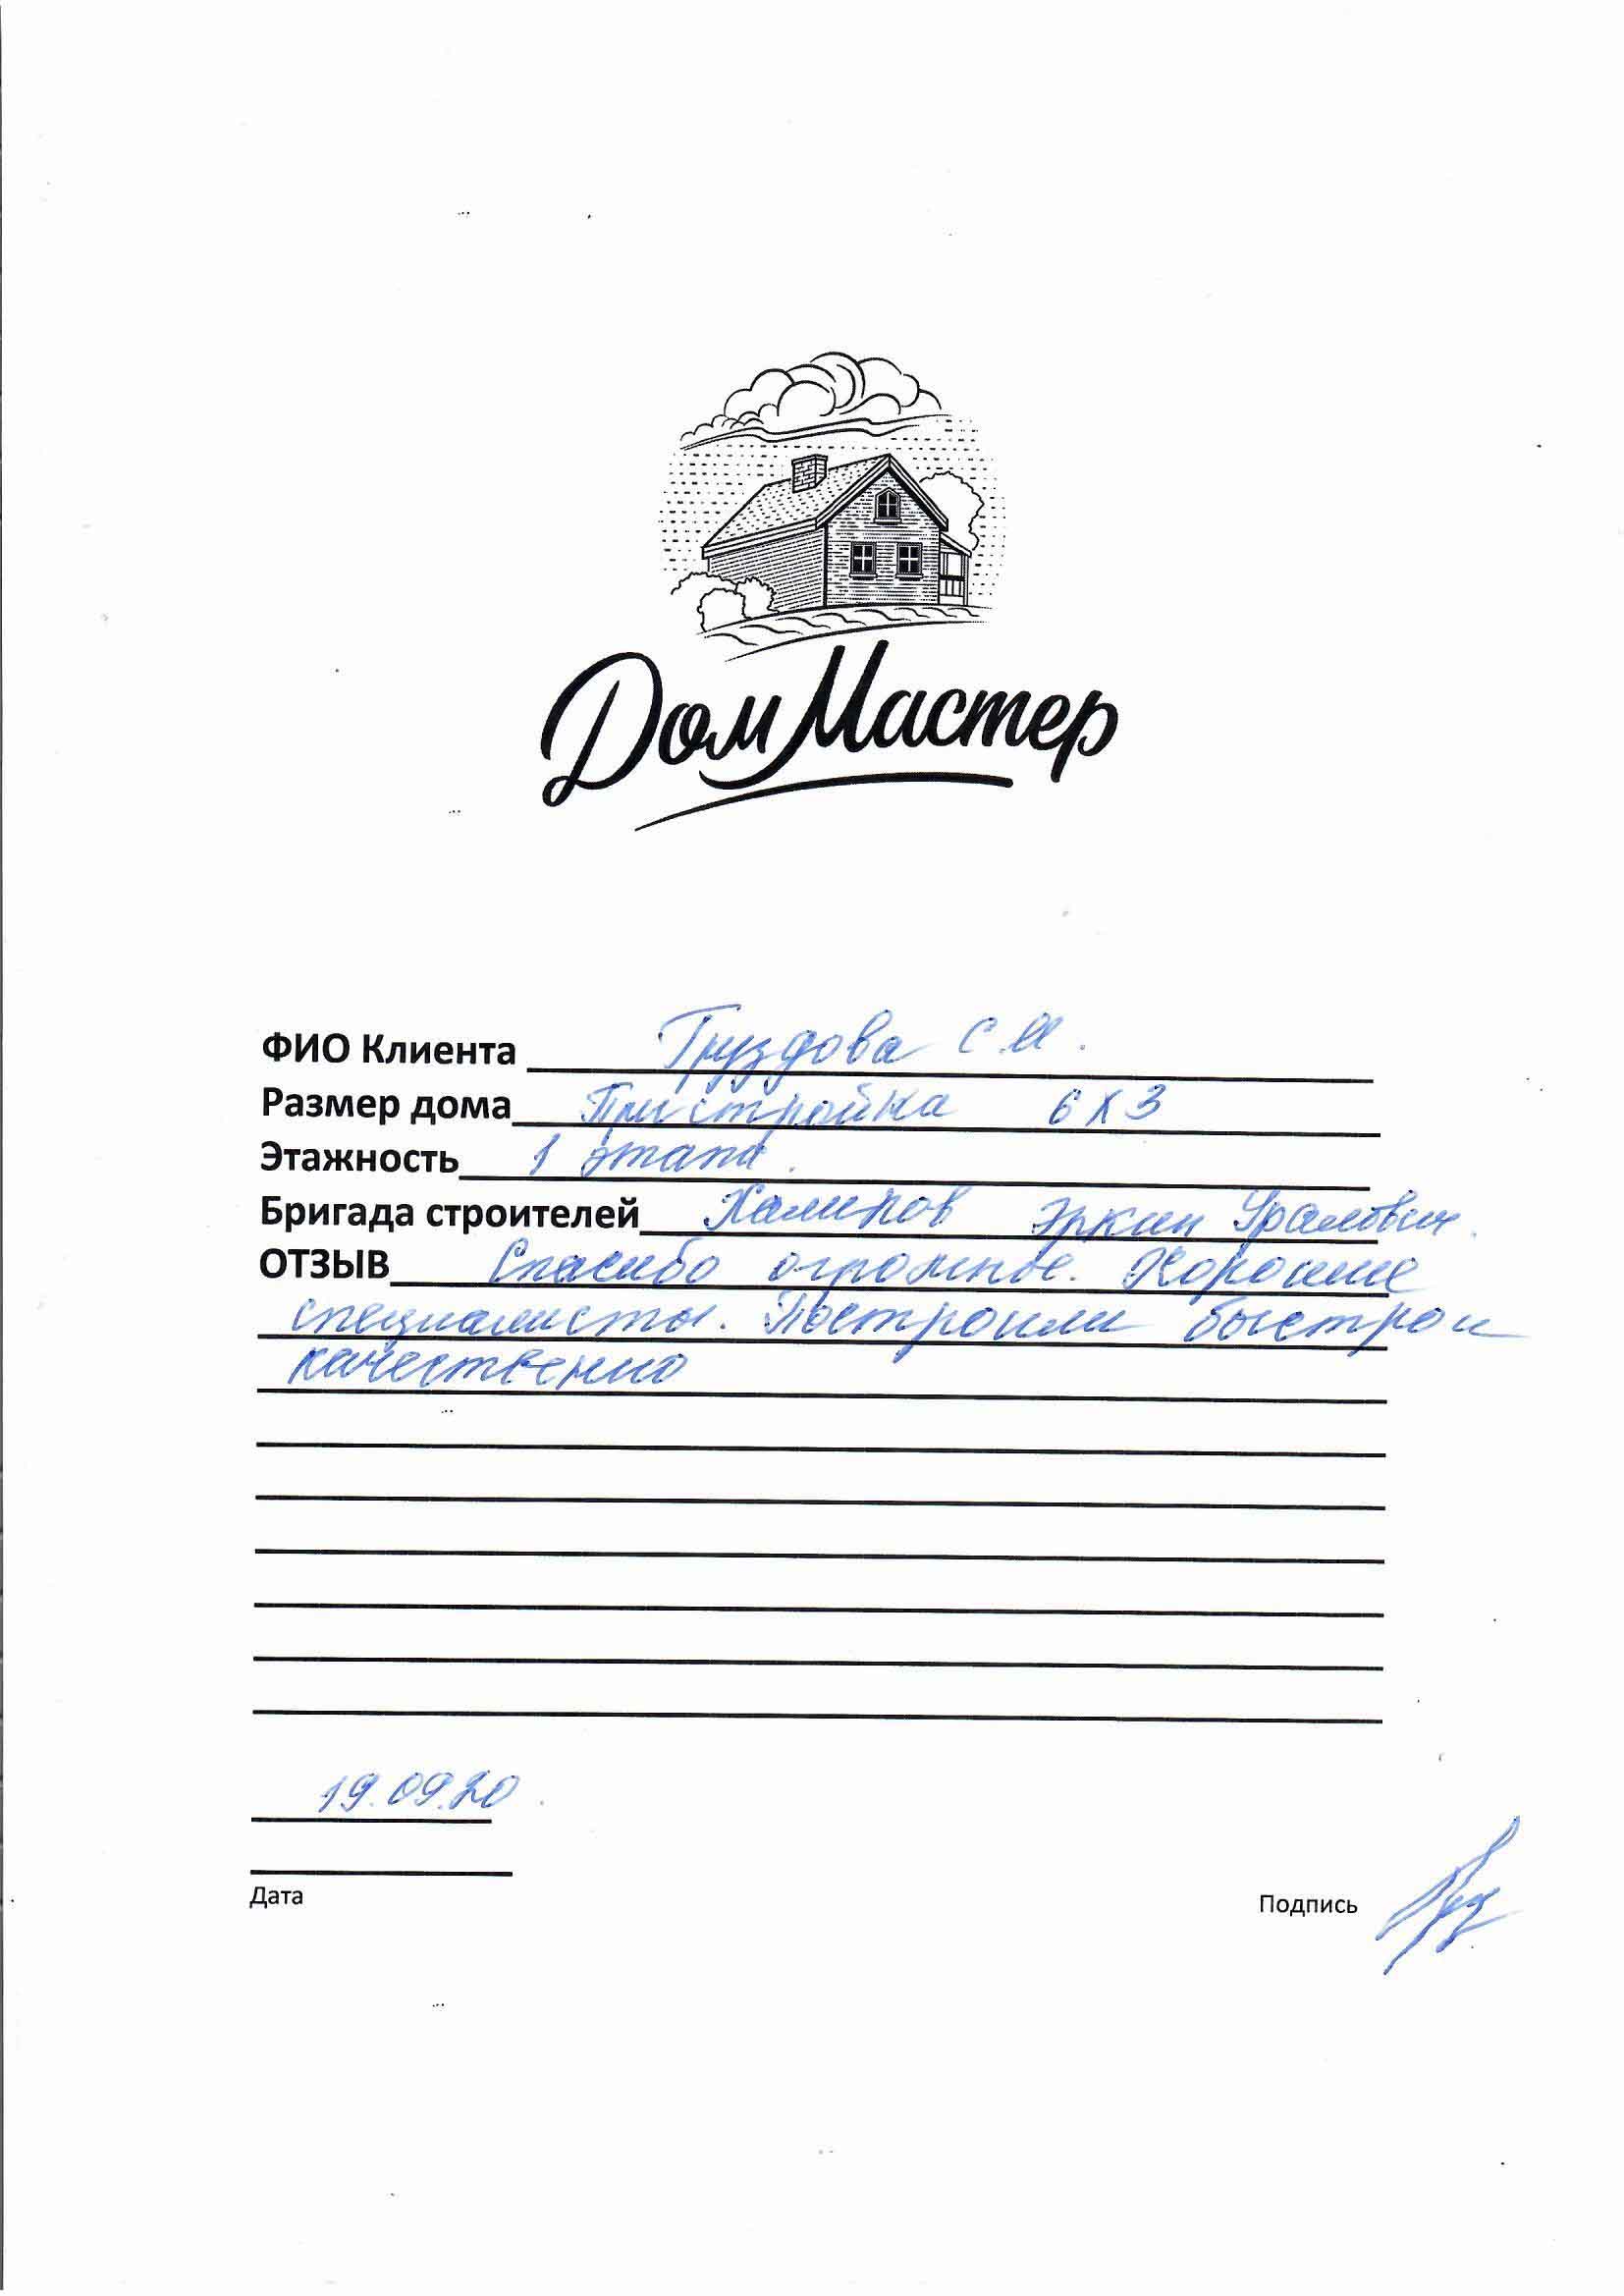 Дом Мастер
ФИО Клиента Груздова С.И.
Размер дома Пристройка 6 х 3
Этажность 1 этапа.
Бригада строителей Халиков Эркин Уралович.
ОТЗЫВ Спасибо огромное. Хорошие
специалисты. Построили быстро и
качественно
19.09.20
Дата
Подпись